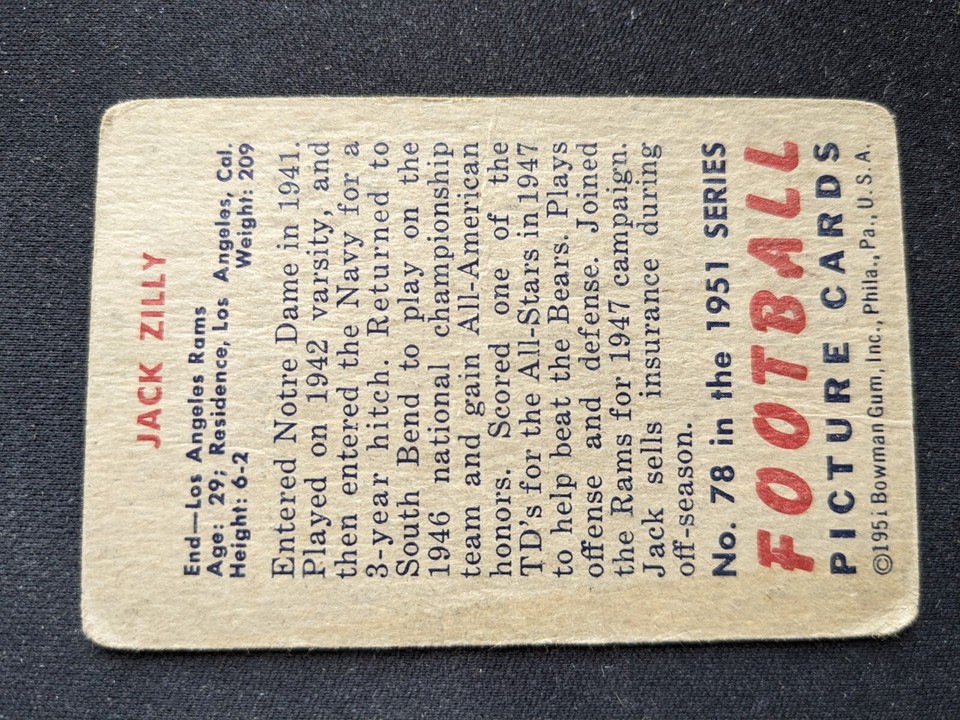 JACK ZILLY
End—Los Angeles Rams
Age: 29; Residence, Los Angeles, Cal.
Height: 6-2 Weight: 209
Entered Notre Dame in 1941.
Played on 1942 varsity, and
then entered the Navy for a
3-year hitch. Returned to
South Bend to play on the
1946 national championship
team and gain All-American
honors. Scored one of the
TD's for the All-Stars in 1947
to help beat the Bears. Plays
offense and defense. Joined
the Rams for 1947 campaign.
Jack sells insurance during
off-season.
No. 78 in the 1951 SERIES
FOOTBALL
PICTURE CARDS
©1951 Bowman Gum, Inc., Phila., Pa., U.S.A.